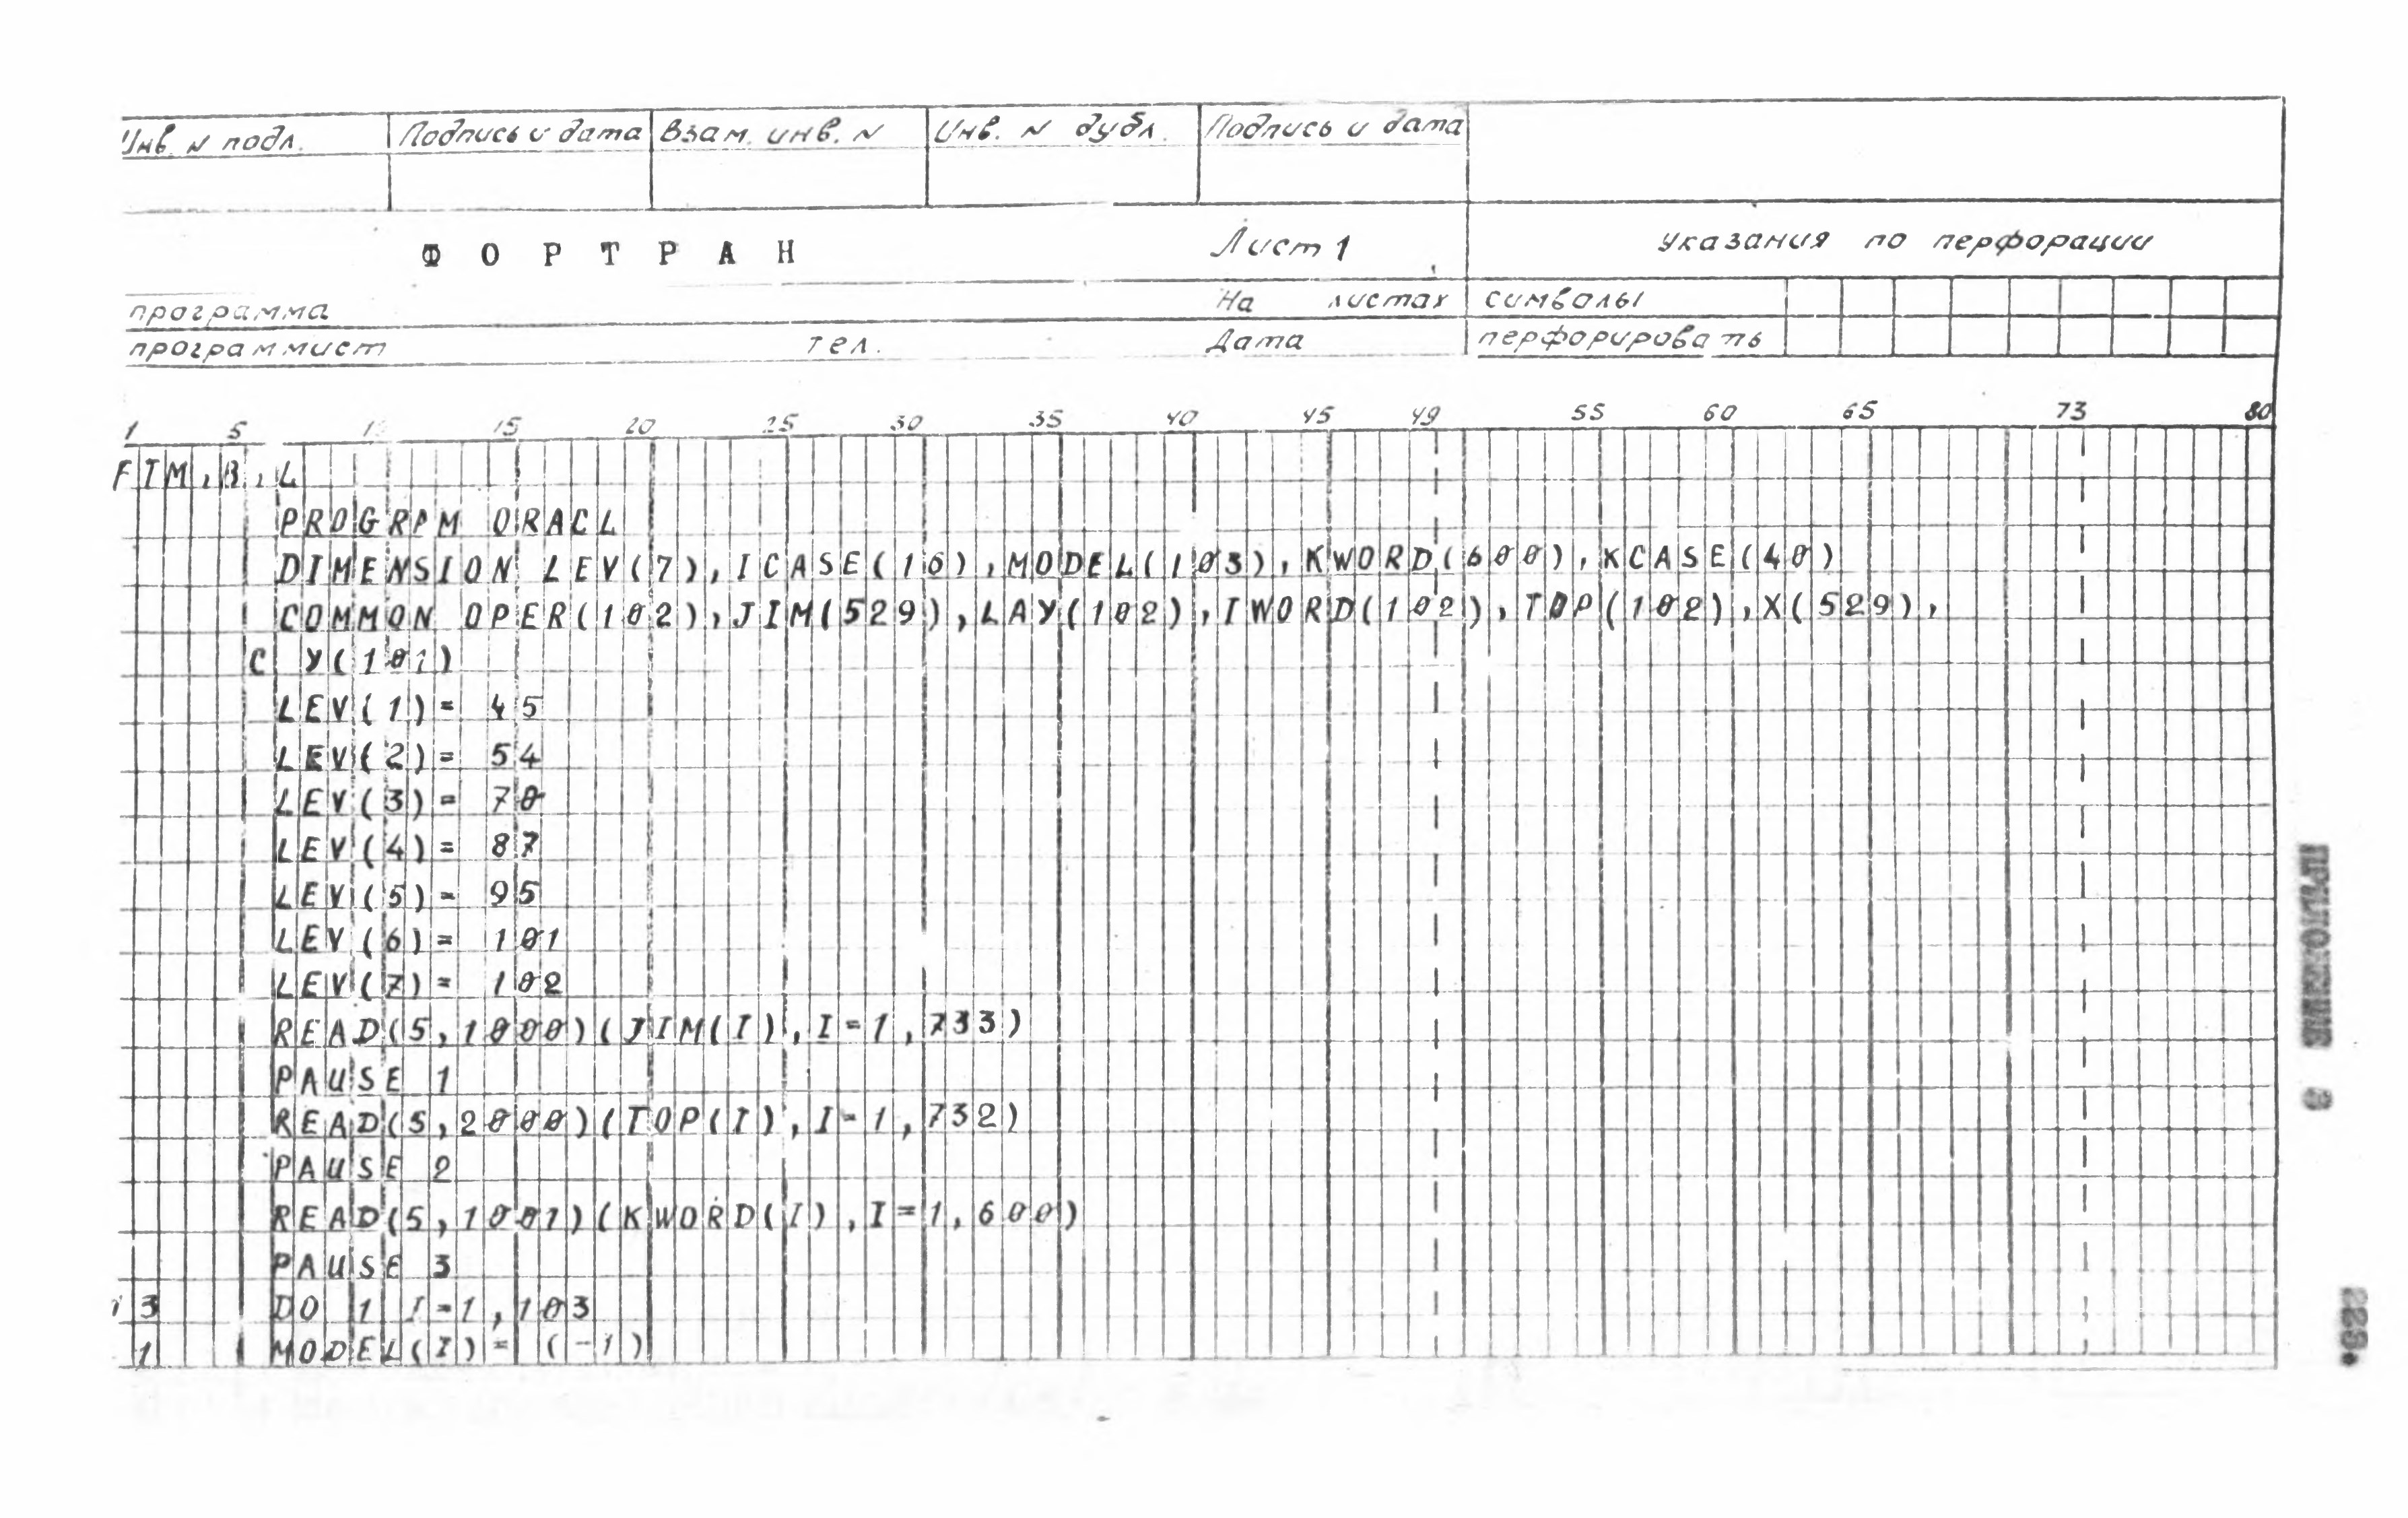 Инв. N подл. Подпись и дата Взам. инв. N Инв. N дубл. Подпись и дата
ФОРТРАН Лист 1 Указания по перфорации
программа На листах символы
программист тел. Дата перфорировать
1 5 15 20 25 30 35 40 45 49 55 60 65 73 80
FTM,B,L
PROGRAM ORACL
DIMENSION LEV(7),ICASE(16),MODEL(103),KWORD(600),KCASE(40)
COMMON OPER(102),JIM(529),LAY(102),IWORD(102),TOP(102),X(529),
C Y(101)
LEV(1)= 45
LEV(2)= 54
LEV(3)= 70
LEV(4)= 87
LEV(5)= 95
LEV(6)= 101
LEV(7)= 102
READ(5,1000)(JIM(I),I=1,733)
PAUSE 1
READ(5,2000)(TOP(I),I=1,732)
PAUSE 2
READ(5,1001)(KWORD(I),I=1,600)
PAUSE 3
3 DO 1 I=1,103
1 MODEL(I)= (-1)
ПРИЛОЖЕНИЕ 3